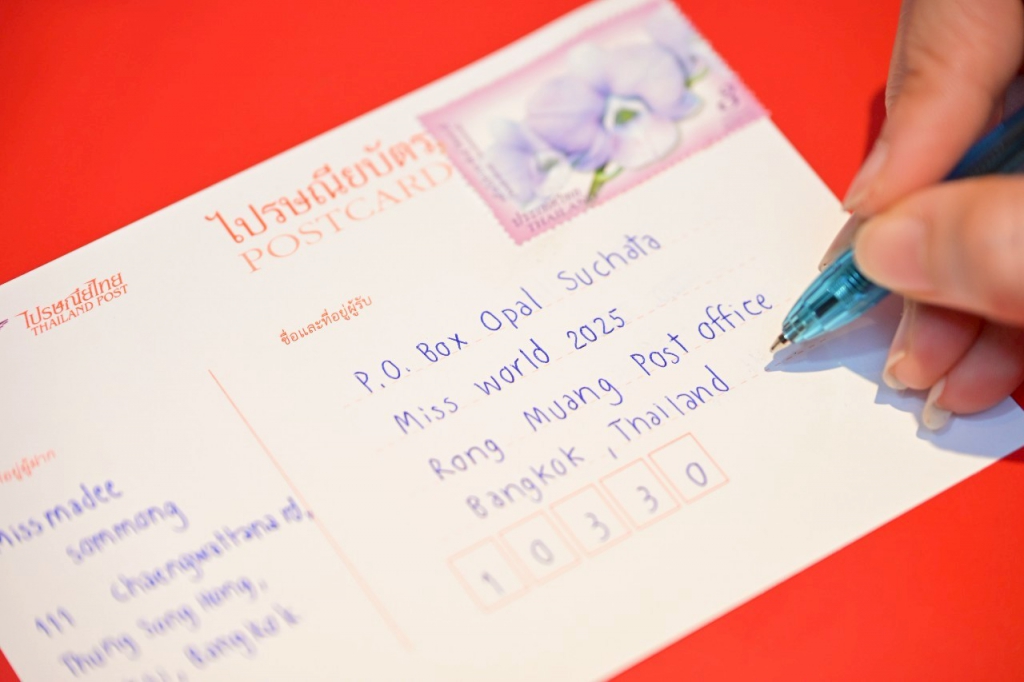 ไปรษณียบัตร
POSTCARD
ประเทศไทย
THAILAND
ไปรษณีย์ไทย
THAILAND POST
ชื่อและที่อยู่ผู้รับ
P.O. Box Opal Suchata
Miss world 2025
Rong Muang Post office
Bangkok, Thailand
10330
ที่อยู่ผู้ฝาก
Miss madee
sommang
111 chaengwattana rd,
Thung Song Hong,
Bangkok